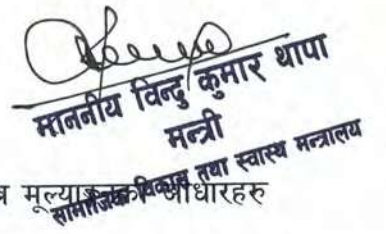 माननीय विन्दु कुमार थापा
मन्त्री
सामाजिक विकास तथा स्वास्थ मन्त्रालय
मूल्याङ्कनका आधारहरु